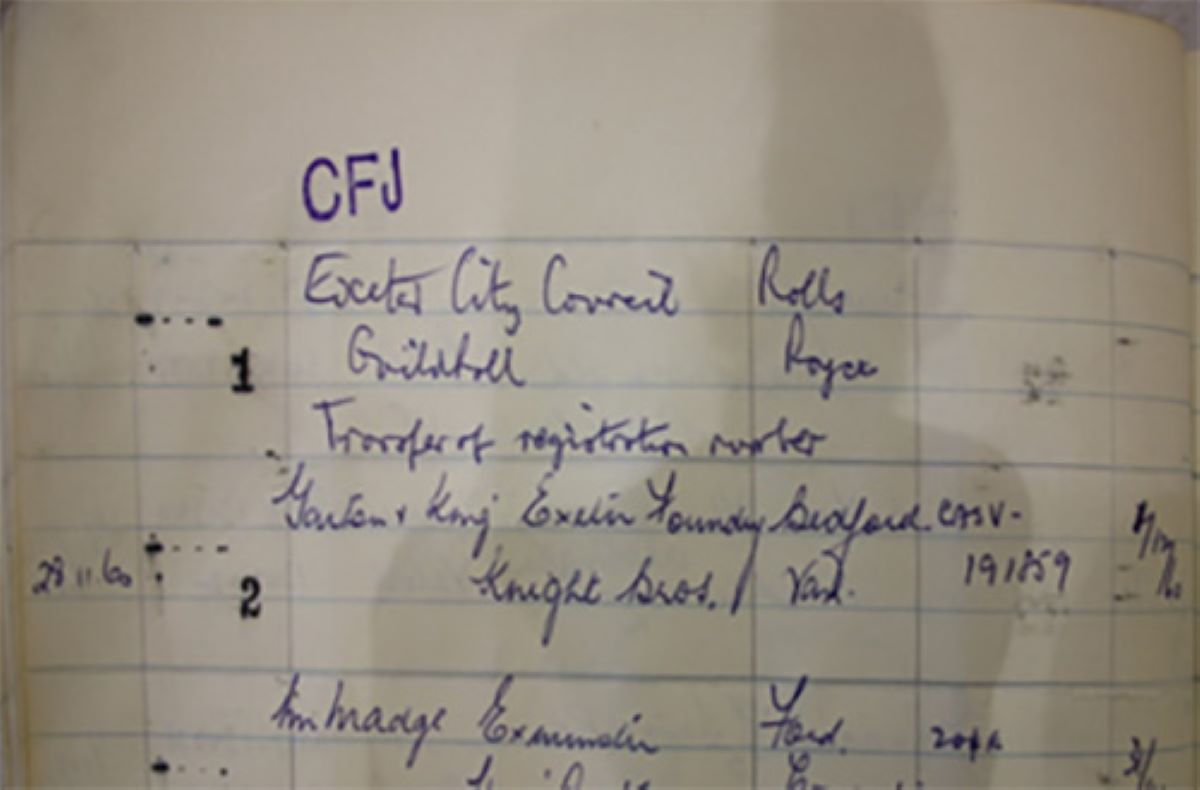 CFJ
Exeter City Council Rolls
1 Guildhall Royce
Transfer of registration number
Garton & King Exeter Foundry Bedford CASV-
28 11. 60 2 Knight Bros. Van. 191859
Madge Exminster Ford.